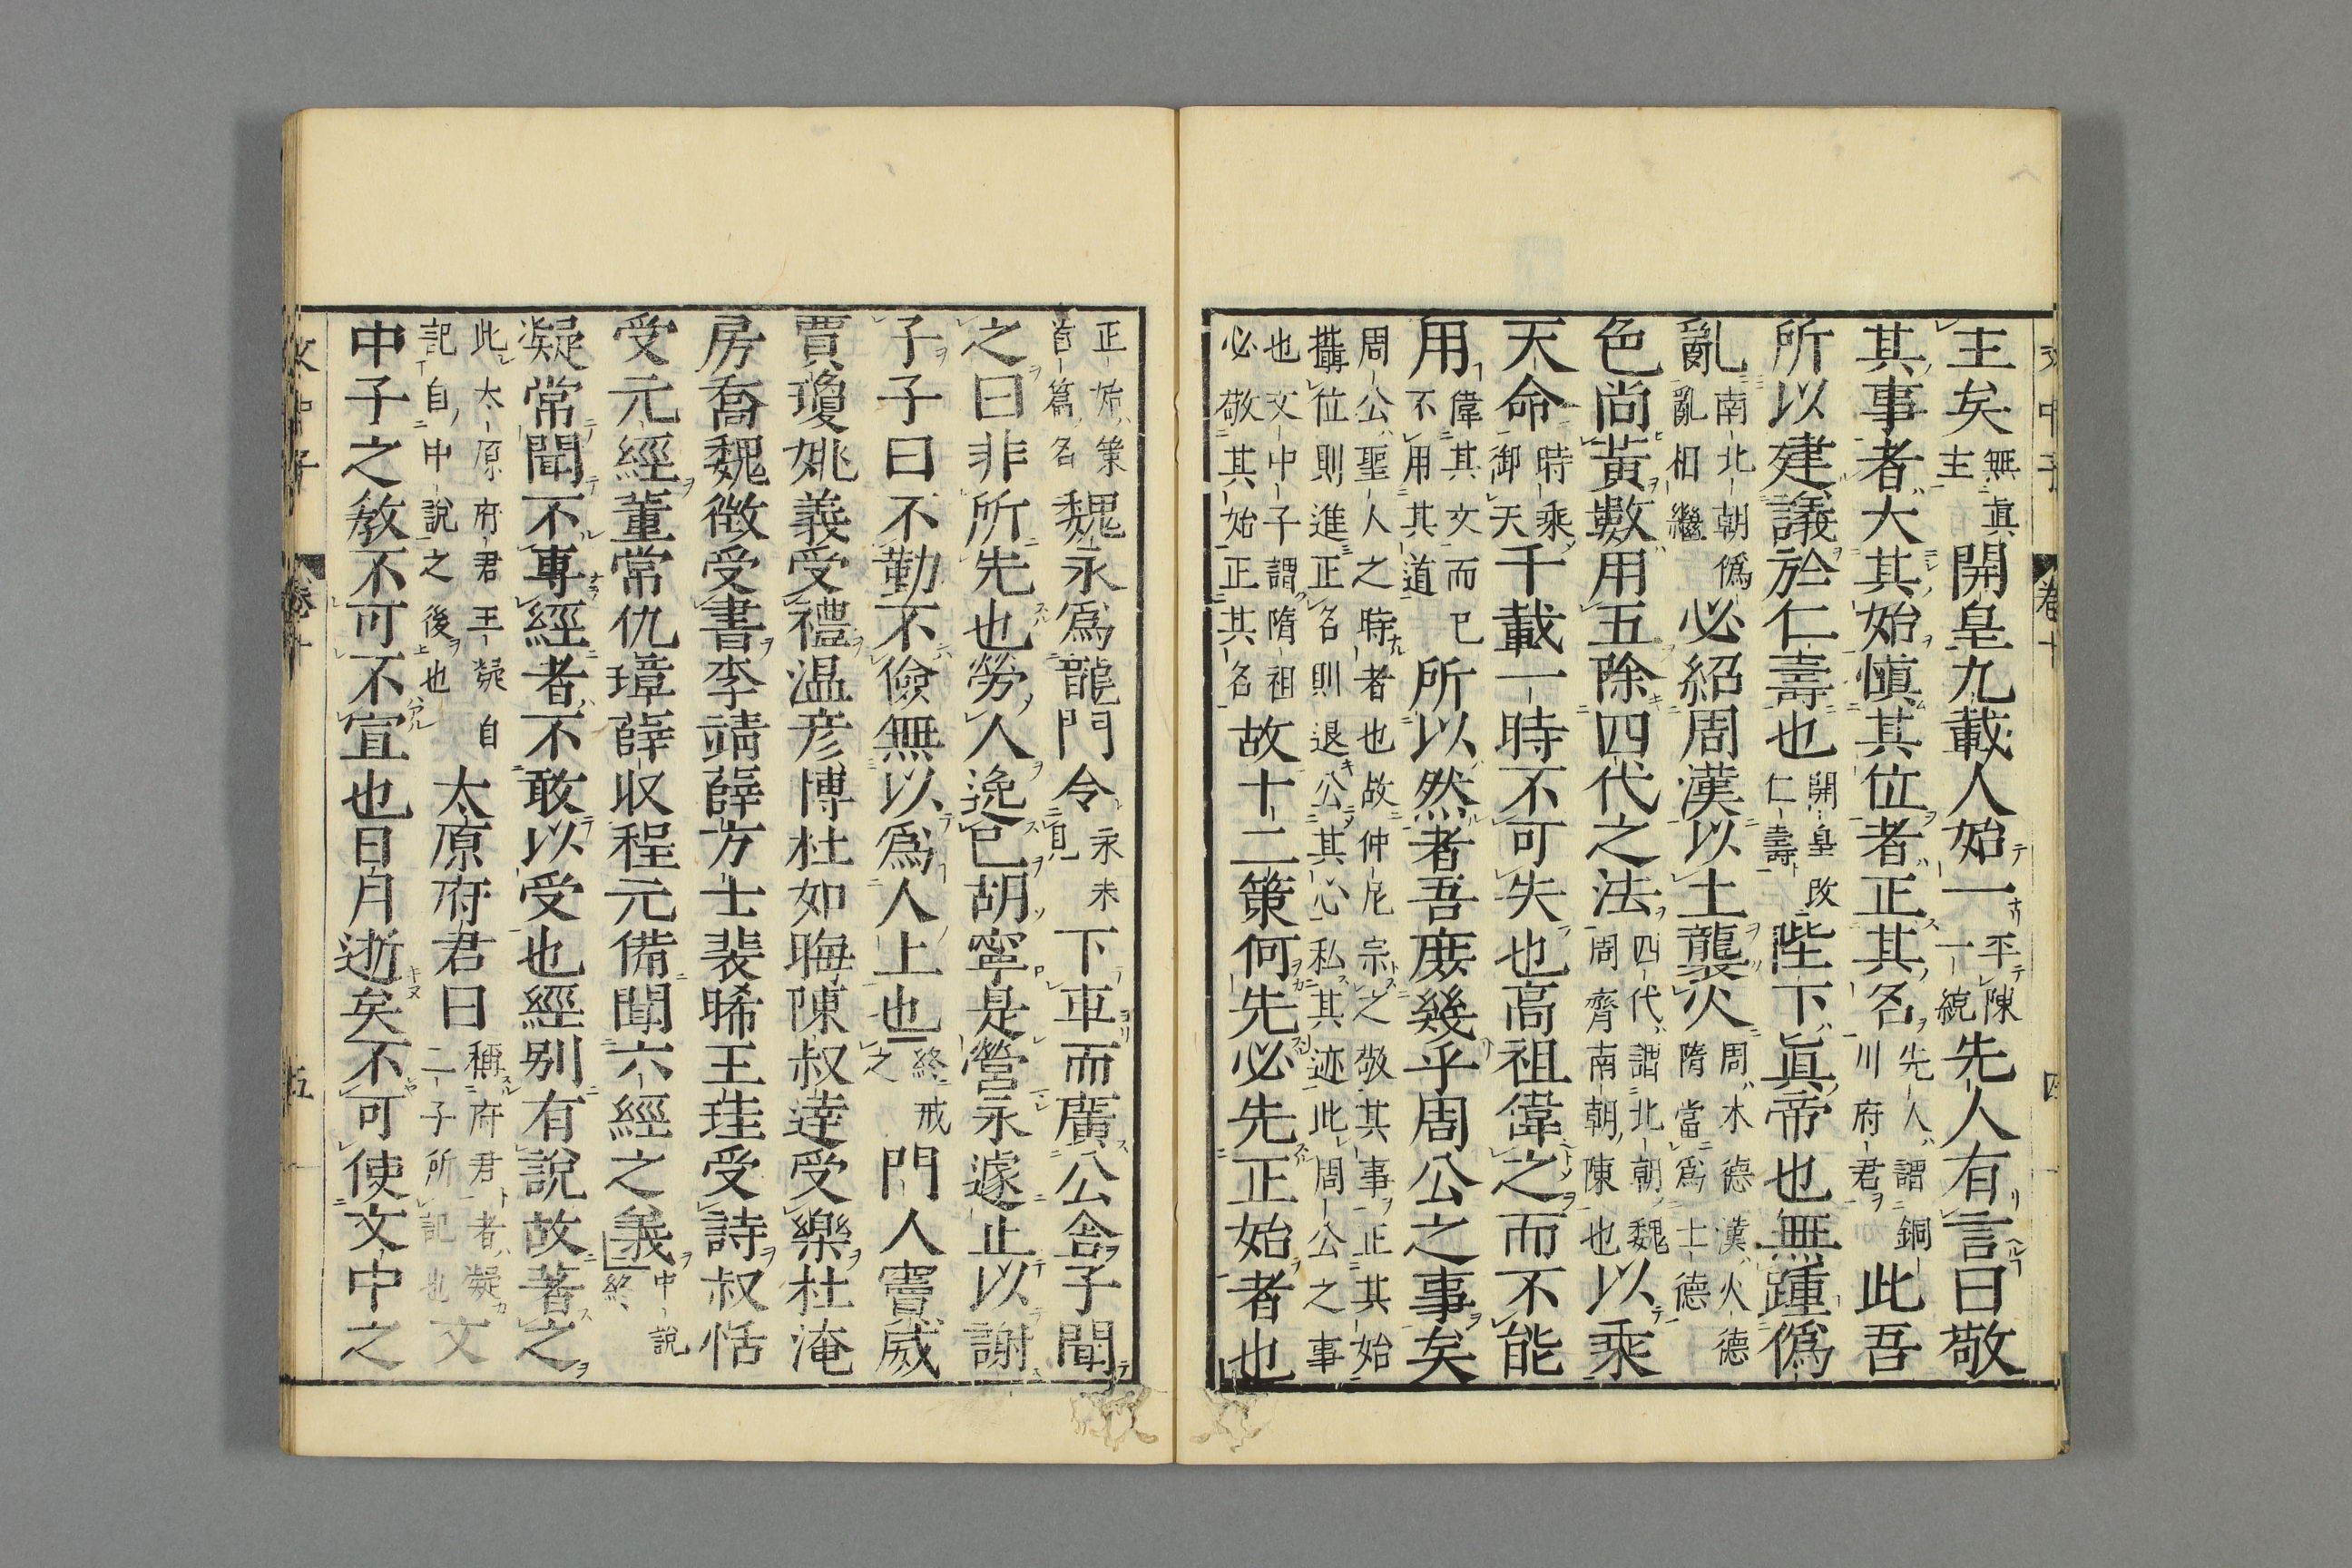 主矣無眞主開皇九載人始一平陳一統先人有言曰敬
其事者大其始愼其位者正其名先人謂銅川府君此吾
所以建議於仁壽也開皇改仁壽陛下眞帝也無踵僞
亂南北朝僞亂相繼必紹周漢以土襲火周木德漢火德隋當爲土德
色尚黃數用五除四代之法四代謂北朝魏周齊南朝陳也以乘
天命時乘御天千載一時不可失也高祖偉之而不能
用偉其文而已不用其道所以然者吾庶幾乎周公之事矣
周公聖人之時者也故仲尼宗之敬其事正其始
攝位則進正名則退公其心私其迹此周公之事
也文中子謂隋祖必敬其始正其名故十二策何先必先正始者也
正始策首篇名魏永爲龍門令永未見下車而廣公舍子聞
之曰非所先也勞人逸己胡寧是營永遽止以謝
子子曰不勤不儉無以爲人上也終戒之門人竇威
賈瓊姚義受禮温彦博杜如晦陳叔達受樂杜淹
房喬魏徴受書李靖薛方士裴晞王珪受詩叔恬
受元經董常仇璋薛収程元備聞六經之義中說終
凝常聞不專經者不敢以受也經別有說故著之
此太原府君王凝自記自中說之後也太原府君曰稱府君者凝二子所記也文
中子之敎不可不宣也日月逝矣不可使文中之
文中子 卷十 四
文中子 卷十 五